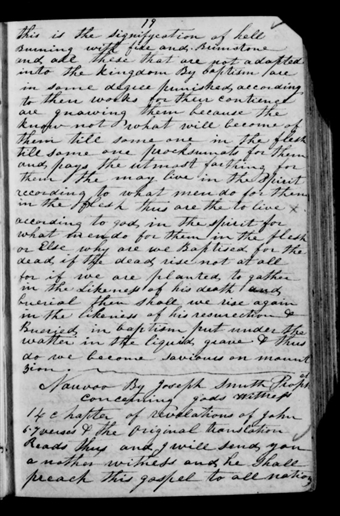 19
this is the signifycation of hell
Burning with fire and Brimstone
and all these that are not adopted
into the kingdom By baptism are
in some degree punished according
to their works for their contience
are gnawing them because the
know not what will become of
them till some one in the flesh
till some one for them
and pays the utmost farthing for
them & the may live in the spirit
recording to what men do for them
in the flesh thus are the to live
according to god in the spirit for
what men do for them in the flesh
or Else why are we Baptised for the
dead if the dead rise not at all
for if we are planted to gather
in the Likeness of his death and
buerial then shall we rise again
in the likeness of his resurection &
Bueried in baptism put under the
watter in the liquid grave & thus
do we become saviours on mount
Zion
Nauvoo By Joseph Smith Proph
concerning gods witness
14 c hapter of revelations of John
6-7 verses & the original translation
Reads thus and I will send you
a nother witness and he shall
preach this gospel to all nations